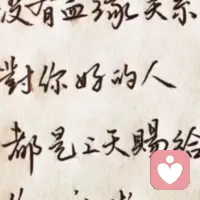 沒有血緣关系
對你好的人
都是上天賜給